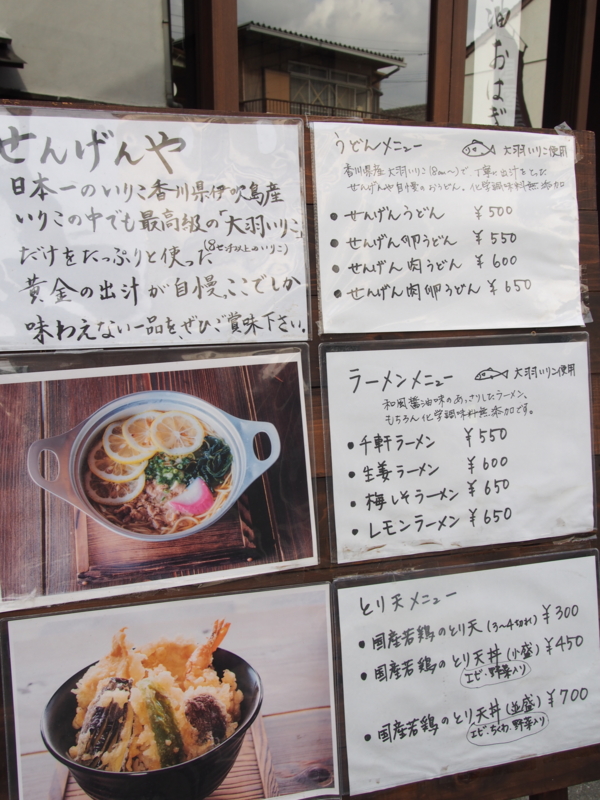 せんげんや
日本一のいりこ香川県伊吹島産
いりこの中でも最高級の「大羽いりこ」
(8センチ以上のいりこ)
だけをたっぷりと使った
黄金の出汁が自慢、ここでしか
味わえない一品をぜひご賞味下さい。
うどんメニュー 大羽いりこ使用
香川県産大羽いりこ(8cm〜)で、丁寧に出汁をとった
せんげんや自慢のおうどん。化学調味料無添加
• せんげんうどん ¥500
• せんげん卵うどん ¥550
• せんげん肉うどん ¥600
• せんげん肉卵うどん ¥650
ラーメンメニュー 大羽いりこ使用
和風醤油味のあっさりしたラーメン、
もちろん化学調味料無添加です。
• 千軒ラーメン ¥550
• 生姜ラーメン ¥600
• 梅しそラーメン ¥650
• レモンラーメン ¥650
とり天メニュー
• 国産若鶏のとり天(3〜4切れ) ¥300
• 国産若鶏のとり天丼(小盛) ¥450
エビ・野菜入り
• 国産若鶏のとり天丼(並盛) ¥700
エビ、ちくわ、野菜入り
油おはぎ